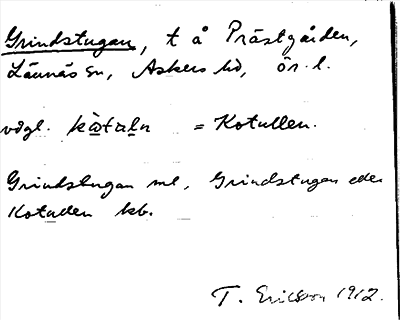 Grindstugan, t å Prästgården,
Lännäs sn, Askers hd, ör. l.
vdgl. kὰtaḷn = Kotullen.
Grindstugan ml, Grindstugan eller
Kotullen kb.
T. Ericsson 1912.